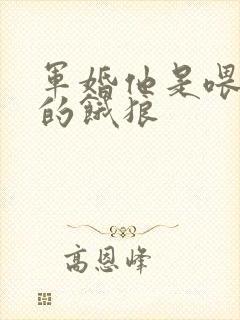 軍婚他是喂
的餓狼
高恩峰